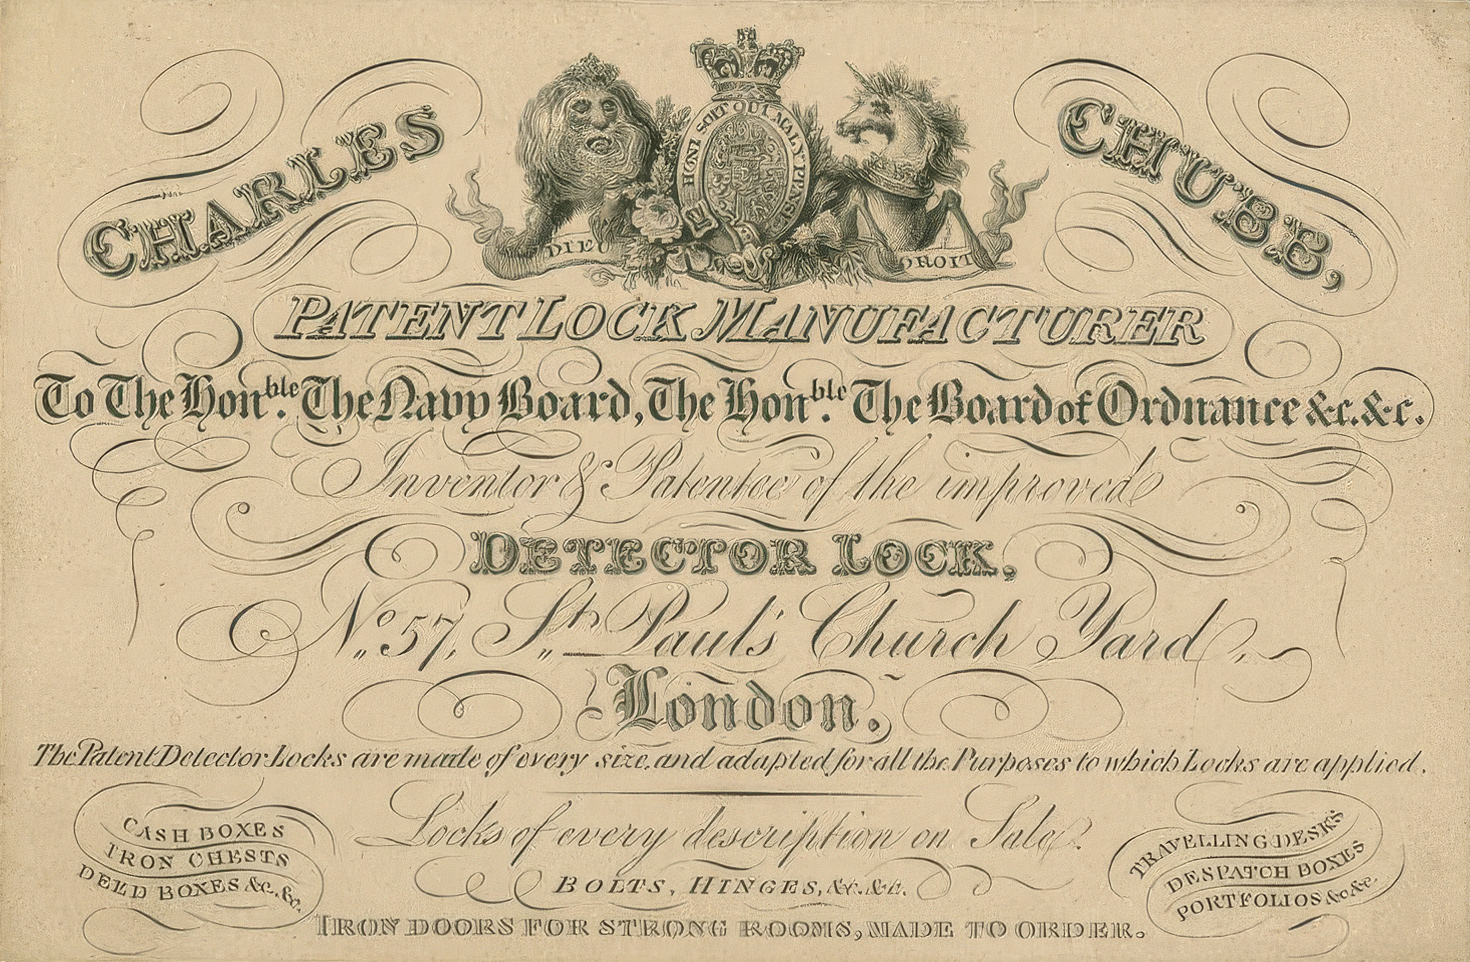 CHARLES CHUBB,
HONI SOIT QUI MAL Y PENSE
DIEU
DROIT
PATENT LOCK MANUFACTURER
To The Honble. The Navy Board, The Honble. The Board of Ordnance &c. &c.
Inventor & Patentee of the improved
DETECTOR LOCK,
No. 57, St. Paul's Church Yard,
London.
The Patent Detector Locks are made of every size, and adapted for all the Purposes to which Locks are applied.
Locks of every description on Sale.
BOLTS, HINGES, &c. &c.
CASH BOXES
IRON CHESTS
DEED BOXES &c. &c.
TRAVELLING DESKS
DESPATCH BOXES
PORTFOLIOS &c &c.
IRON DOORS FOR STRONG ROOMS, MADE TO ORDER.